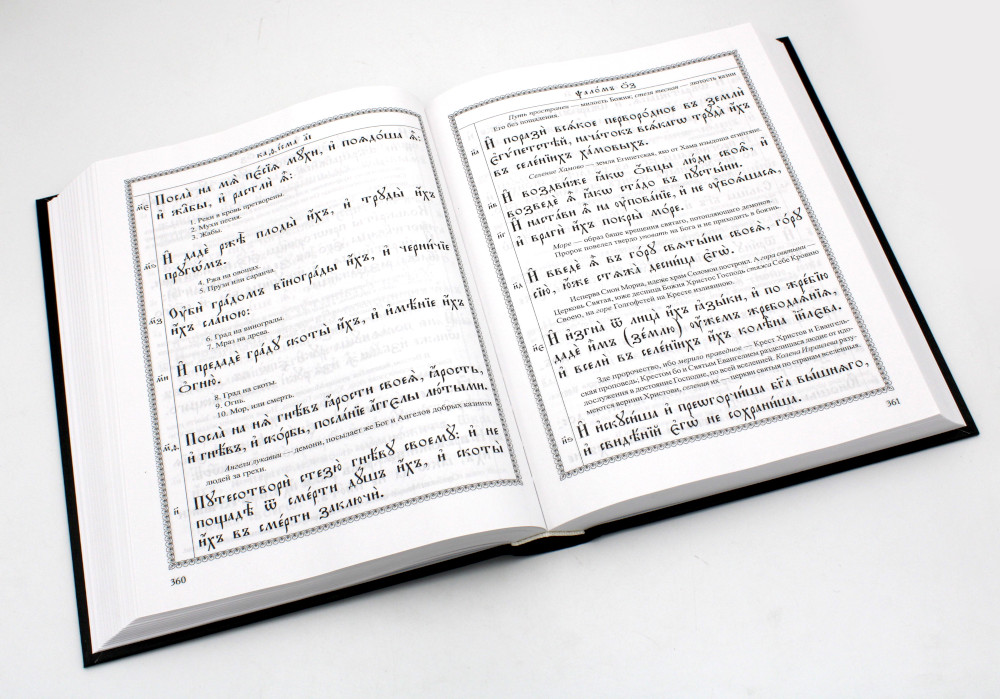 каѳі́сма і҃
Посла̀ на мѧ̀ пє́сїѧ мꙋ́хи, и҆ поѧдо́ша ѧ҆̀:
м҃є
и҆ жа́бы, и҆ растлѝ ѧ҆̀:
1. Реки в кровь претворены.
2. Мухи песия.
3. Жабы.
м҃ѕ
И҆ дадѐ ржѣ̀ плоды̀ и҆́хъ, и҆ трꙋды̀ и҆́хъ
прꙋгѡ́мъ.
4. Ржа на овощах.
5. Грузи или саранча.
м҃з
Оу҆бѝ гра́домъ вїногра́ды и҆́хъ, и҆ черни̑чїе
и҆́хъ сла́ною:
6. Град на винограды.
7. Мраз на древа.
м҃и
И҆ предадѐ гра́дꙋ скоты̀ и҆́хъ, и҆ и҆мѣ́нїе и҆́хъ
ѻ҆гню̀.
8. Град на скоты.
9. Огнь.
10. Мор, или смерть.
м҃ѳ
Посла̀ на нѧ̀ гнѣ́въ ꙗ҆́рости своеѧ̀, ꙗ҆́рость,
и҆ гнѣ́въ, и҆ ско́рбь, посла́нїе а҆́ггелы лю́тыми.
Ангели лукавии — демони, посылает же Бог и Ангелов добрых казнити
людей за грехи.
н҃
Пꙋтесотворѝ стезю̀ гнѣ́вꙋ своемꙋ̀: и҆ не
пощадѣ̀ ѿ сме́рти дꙋ́шъ и҆́хъ, и҆ скоты̀
и҆́хъ въ сме́рти заключѝ.
360
ѱало́мъ ѻ҃з
Путь пространен — милость Божия; стезя тесная — лютость казни
Его без пощадения.
н҃а
И҆ поразѝ всѧ́кое перворо́дное въ землѝ
є҆гѵ́петстѣй, нача́токъ всѧ́кагѡ трꙋда̀ и҆́хъ
въ селе́нїихъ ха́мовыхъ.
Селение Хамово — земля Египетская, яко от Хама изыдоша египтяне.
н҃в
И҆ воздви́же ꙗ҆́кѡ ѻ҆́вцы лю́ди своѧ̑, и҆
возведѐ ѧ҆̀ ꙗ҆́кѡ ста́до въ пꙋсты́ни.
н҃г
И҆ наста́ви ѧ҆̀ на ᲂу҆пова́нїе, и҆ не ᲂу҆боѧ́шасѧ,
и҆ врагѝ и҆́хъ покры̀ мо́ре.
Море — образ бяше крещения святаго, потопляющаго демонов.
Пророк повелел твердо уповати на Бога и не приходить в боязнь.
н҃д
И҆ введѐ ѧ҆̀ въ го́рꙋ ст҃ы́ни своеѧ̀, го́рꙋ
сїю̀, ю҆́же стѧжа̀ десни́ца є҆гѡ̀.
Исперва Сион Мориа, идеже храм Соломон построил. А гора святыни —
Церковь Святая, юже десница Божия Христос Господь стяжа Себе Кровию
Своею, на горе Голгофетей на Кресте излиянною.
н҃є
И҆ и҆згна̀ ѿ лица̀ и҆́хъ ꙗ҆зы́ки, и҆ по жре́бїю
дадѐ и҆̀мъ (зе́млю) ᲂу҆́жемъ жребодаѧ́нїѧ,
и҆ вселѝ въ селе́нїихъ и҆́хъ кѡлѣ́на і҆и҃лєва.
Зде пророчество, ибо мерило праведное — Крест Христов и Евангель-
ская проповедь, Крестом бо и Святым Евангелием разделишася людие от идо-
лослужения в достояние Господне, по всей вселенней. Колена Израилева разу-
меются вернии Христови, селения их — церкви святыя по странам вселенныя.
н҃ѕ
И҆ и҆скꙋси́ша и҆ преѡгорчи́ша бг҃а вы́шнѧго,
и҆ свидѣ́нїй є҆гѡ̀ не сохрани́ша.
361